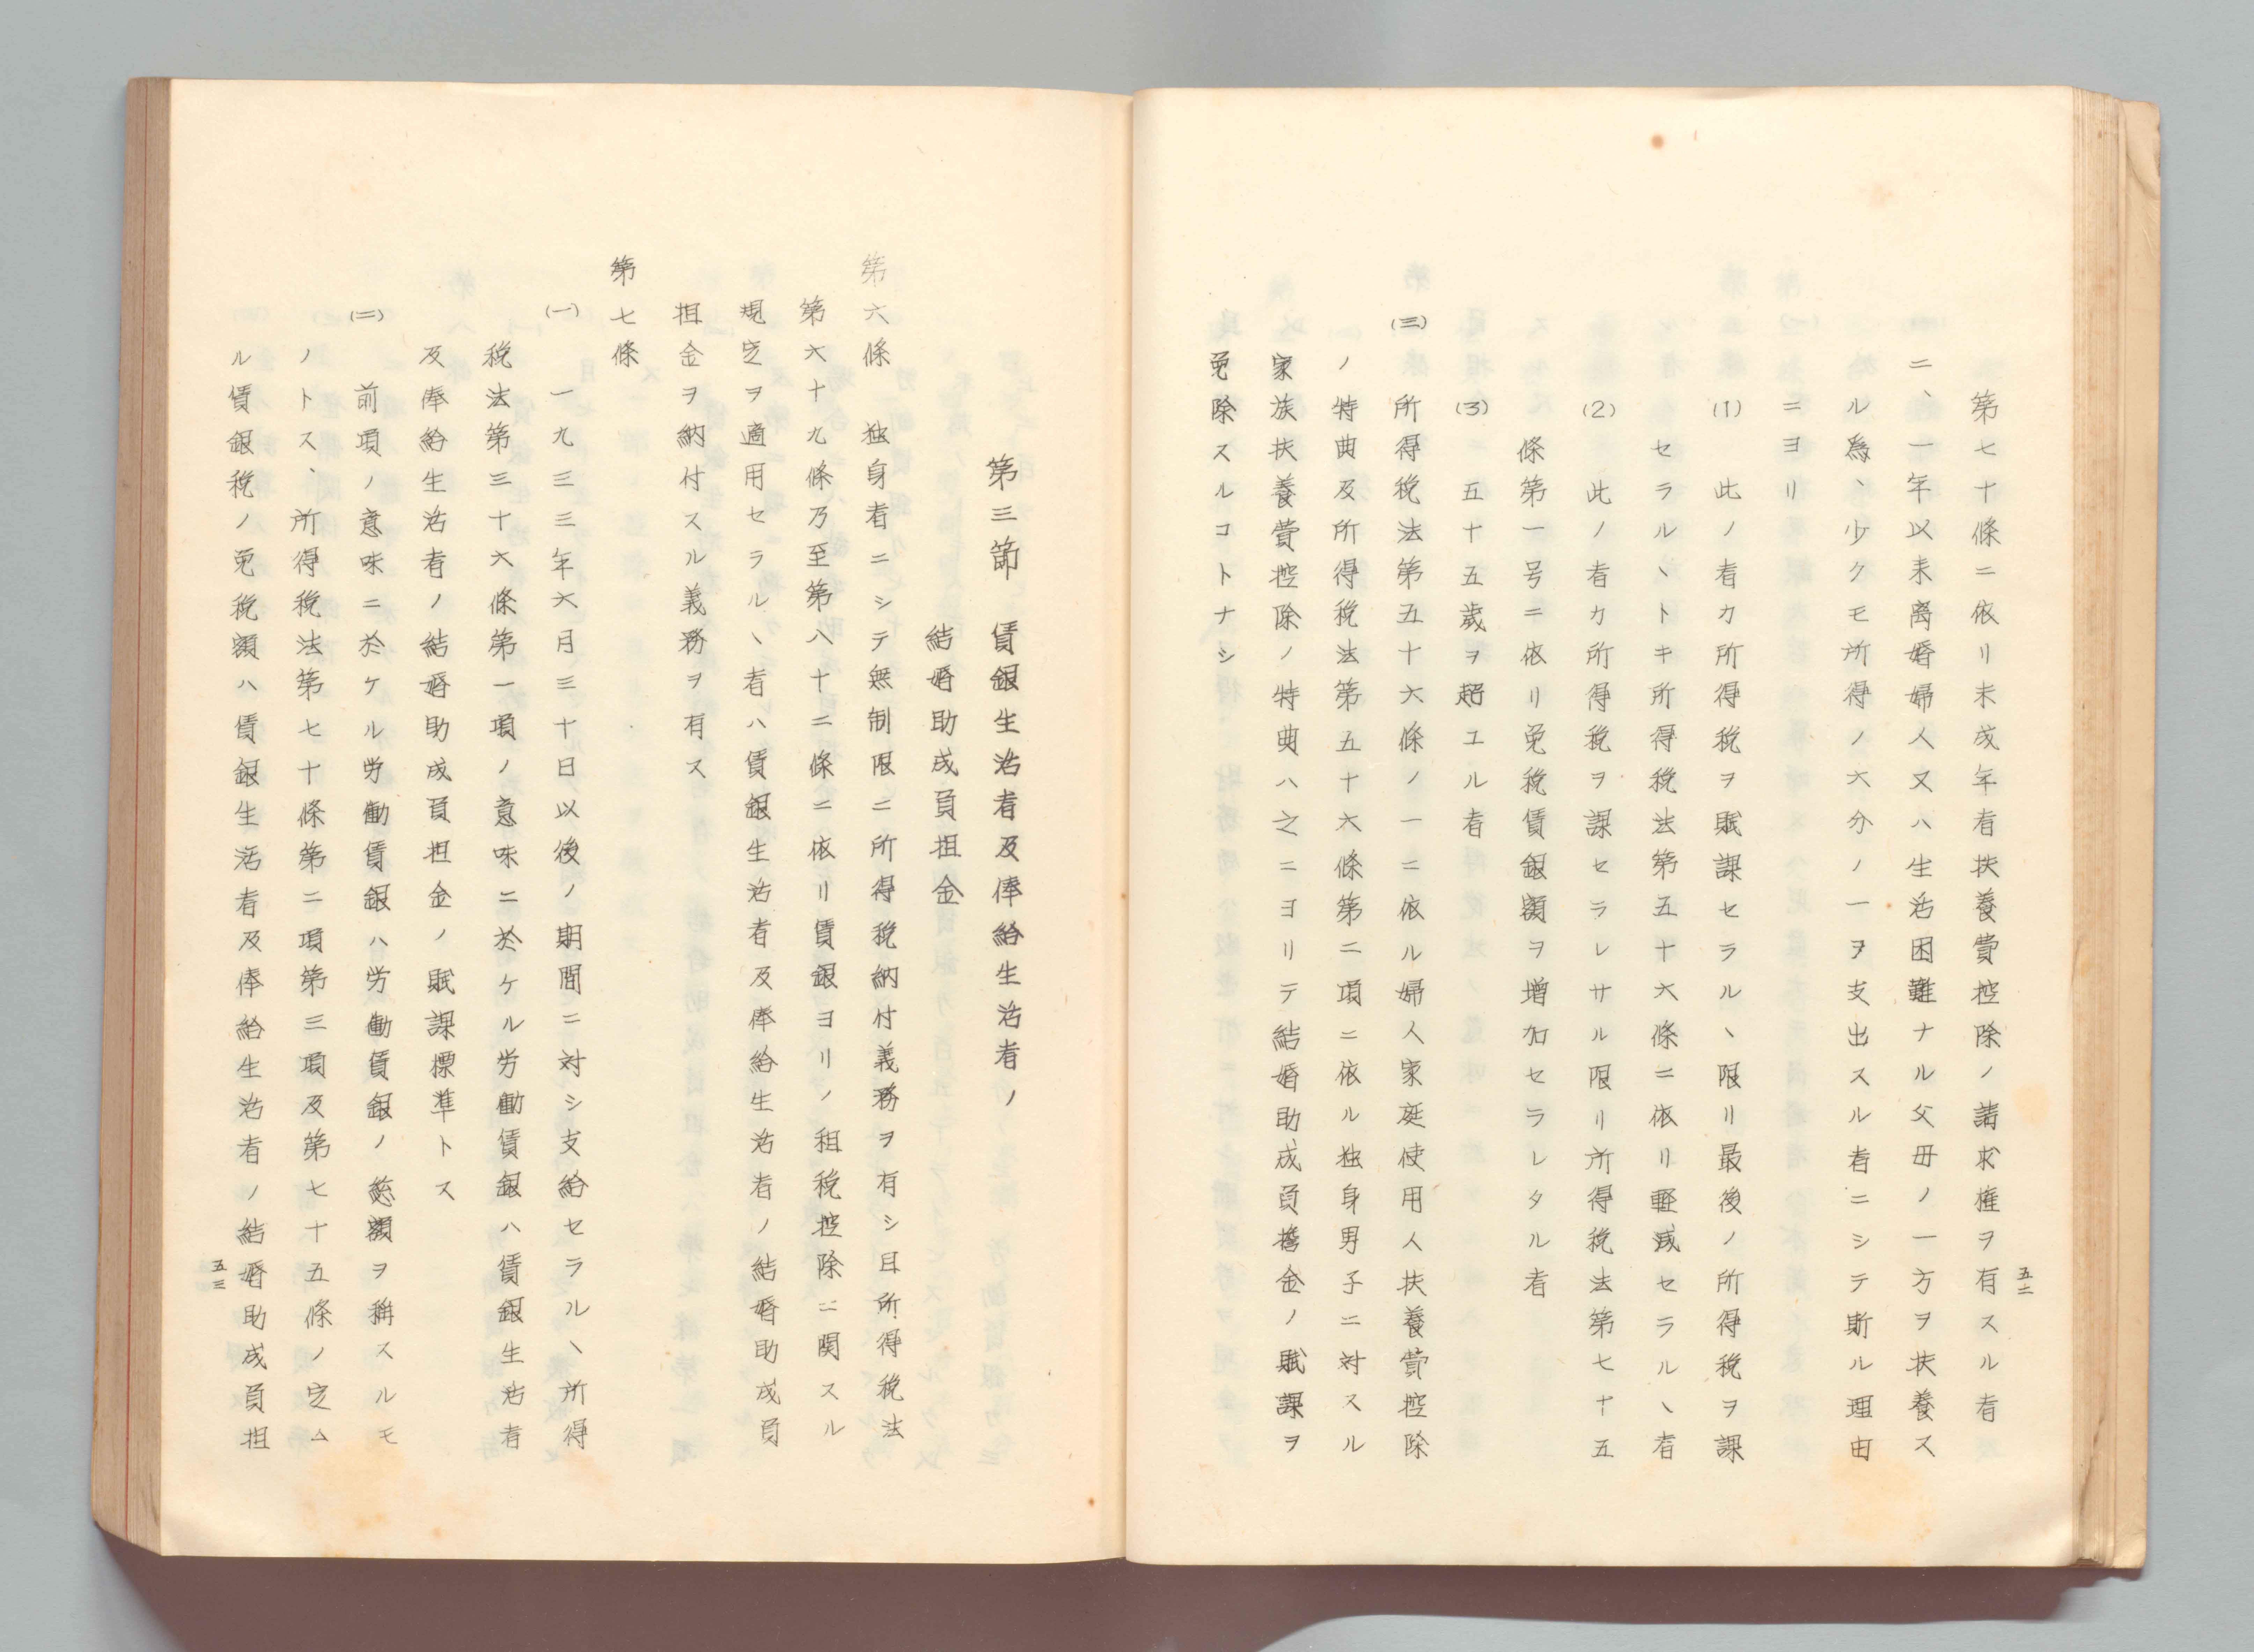 五二
第七十條ニ依リ未成年者扶養費控除ノ請求権ヲ有スル者
ニ、一年以来离婚婦人又ハ生活困難ナル父母ノ一方ヲ扶養ス
ル為、少クモ所得ノ六分ノ一ヲ支出スル者ニシテ斯ル理由
ニヨリ
(1) 此ノ者カ所得税ヲ賦課セラルヽ限リ最後ノ所得税ヲ課
セラルヽトキ所得税法第五十六條ニ依リ軽減セラルヽ者
(2) 此ノ者カ所得税ヲ課セラレサル限リ所得税法第七十五
條第一号ニ依リ免税賃銀額ヲ増加セラレタル者
(3) 五十五歳ヲ超エル者
(三) 所得税法第五十六條ノ一ニ依ル婦人家庭使用人扶養費控除
ノ特典及所得税法第五十六條第二項ニ依ル独身男子ニ対スル
家族扶養費控除ノ特典ハ之ニヨリテ結婚助成負擔金ノ賦課ヲ
免除スルコトナシ
第三節 賃銀生活者及俸給生活者ノ
結婚助成負担金
第六條 独身者ニシテ無制限ニ所得税納付義務ヲ有シ且所得税法
第六十九條乃至第八十二條ニ依リ賃銀ヨリノ租税控除ニ関スル
規定ヲ適用セラルヽ者ハ賃銀生活者及俸給生活者ノ結婚助成負
担金ヲ納付スル義務ヲ有ス
第七條
(一) 一九三三年六月三十日以後ノ期間ニ対シ支給セラルヽ所得
税法第三十六條第一項ノ意味ニ於ケル労働賃銀ハ賃銀生活者
及俸給生活者ノ結婚助成負担金ノ賦課標準トス
(二) 前項ノ意味ニ於ケル労働賃銀ハ労働賃銀ノ総額ヲ稱スルモ
ノトス、所得税法第七十條第二項第三項及第七十五條ノ定ム
ル賃銀税ノ免税額ハ賃銀生活者及俸給生活者ノ結婚助成負担
五三